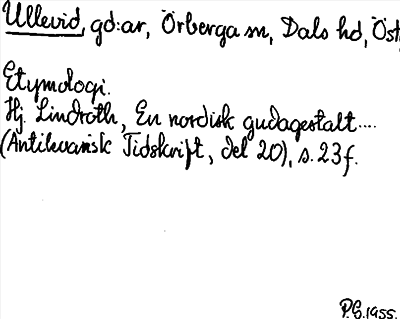 Ullevid, gd:ar, Örberga sn, Dals hd, Öst
Etymologi.
Hj. Lindroth, En nordisk gudagestalt....
(Antikvarisk Tidskrift, del 20), s. 23 f.
P.G. 1955.